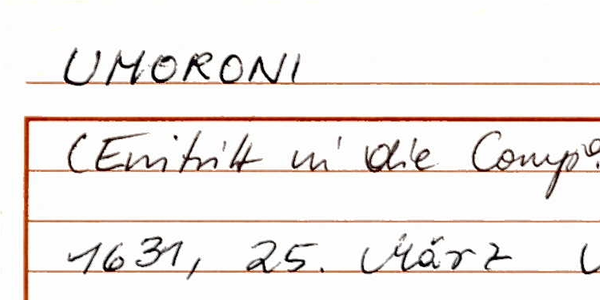 UMORONI
(Eintritt in die Comp
1631, 25. März